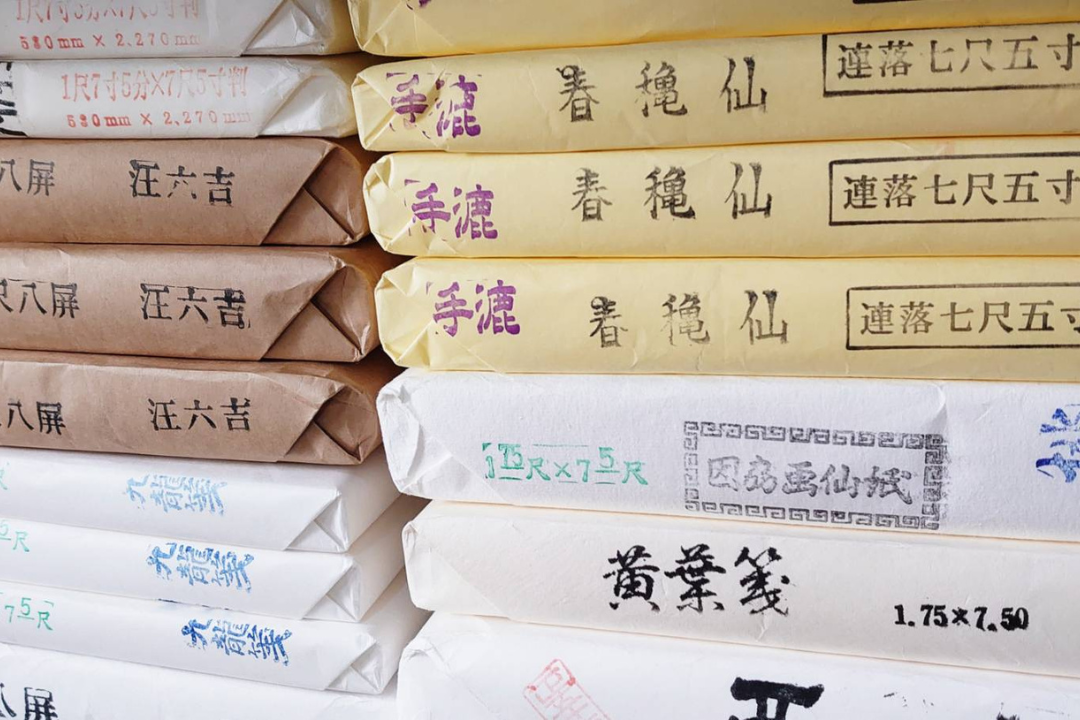 1尺7寸5分×7尺5寸判
530mm × 2,270mm
1尺7寸5分×7尺5寸判
530mm × 2,270mm
八屏 汪六吉
尺八屏 汪六吉
八屏 汪六吉
九龍箋
5尺 九龍箋
7 5尺 九龍箋
八屏
手漉 春穐仙 連落七尺五寸
手漉 春穐仙 連落七尺五寸
手漉 春穐仙 連落七尺五寸
1 75尺×7 5尺 因州画仙紙
黄葉箋 1.75×7.50